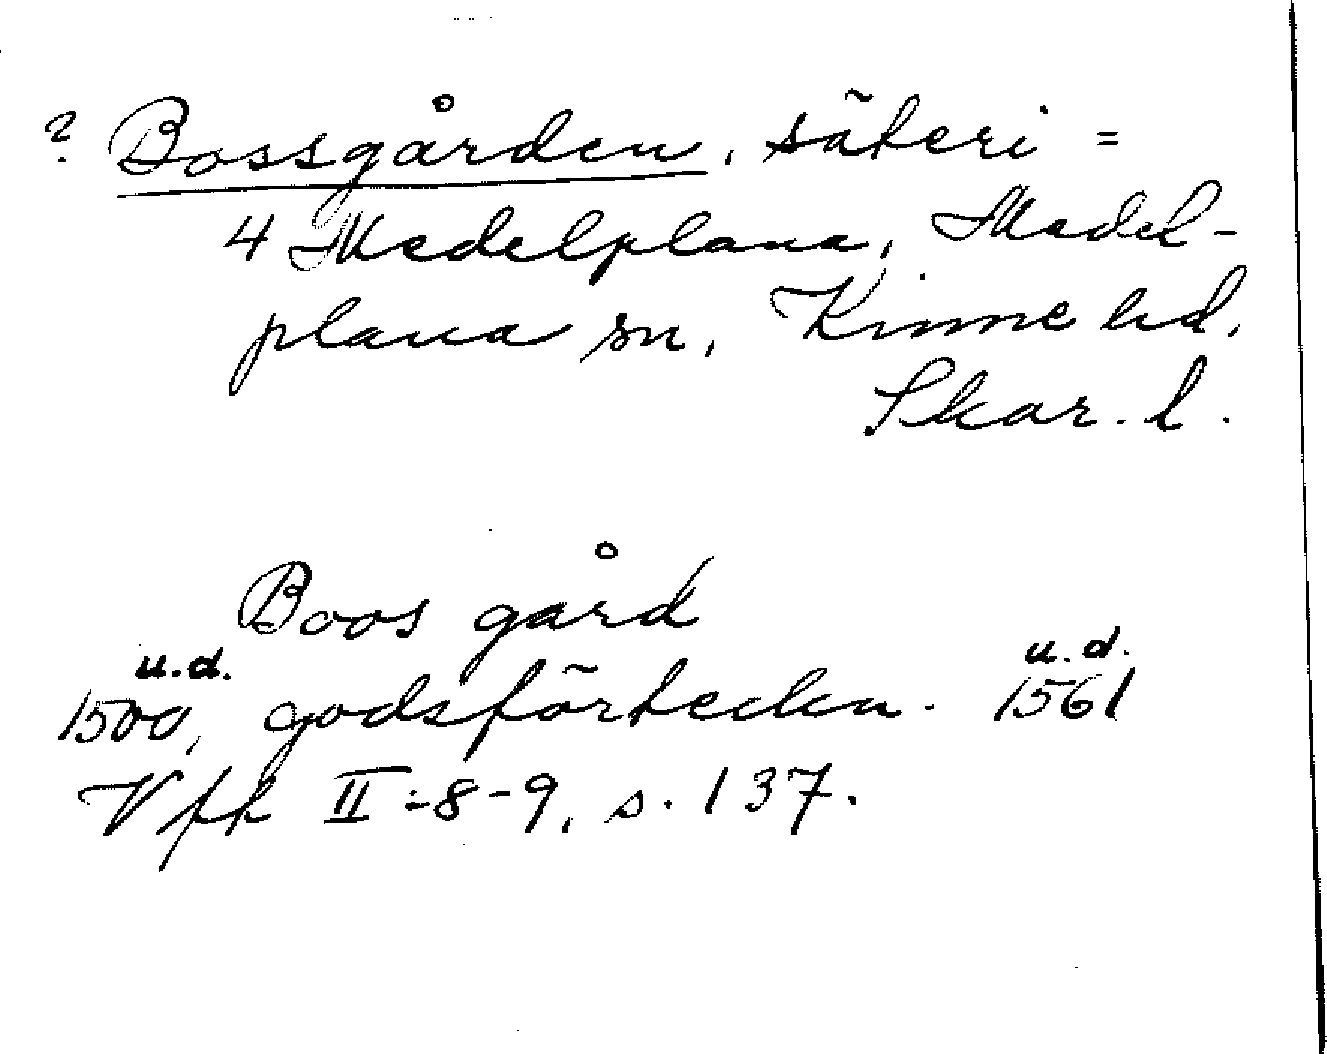 ? Bossgården, säteri =
4 Medelplana, Medel-
plana sn, Kinne hd,
Skar. l.
Boos gård
u.d. u.d.
1500, godsförteckn. 1561
Vfk II:8-9, s. 137.